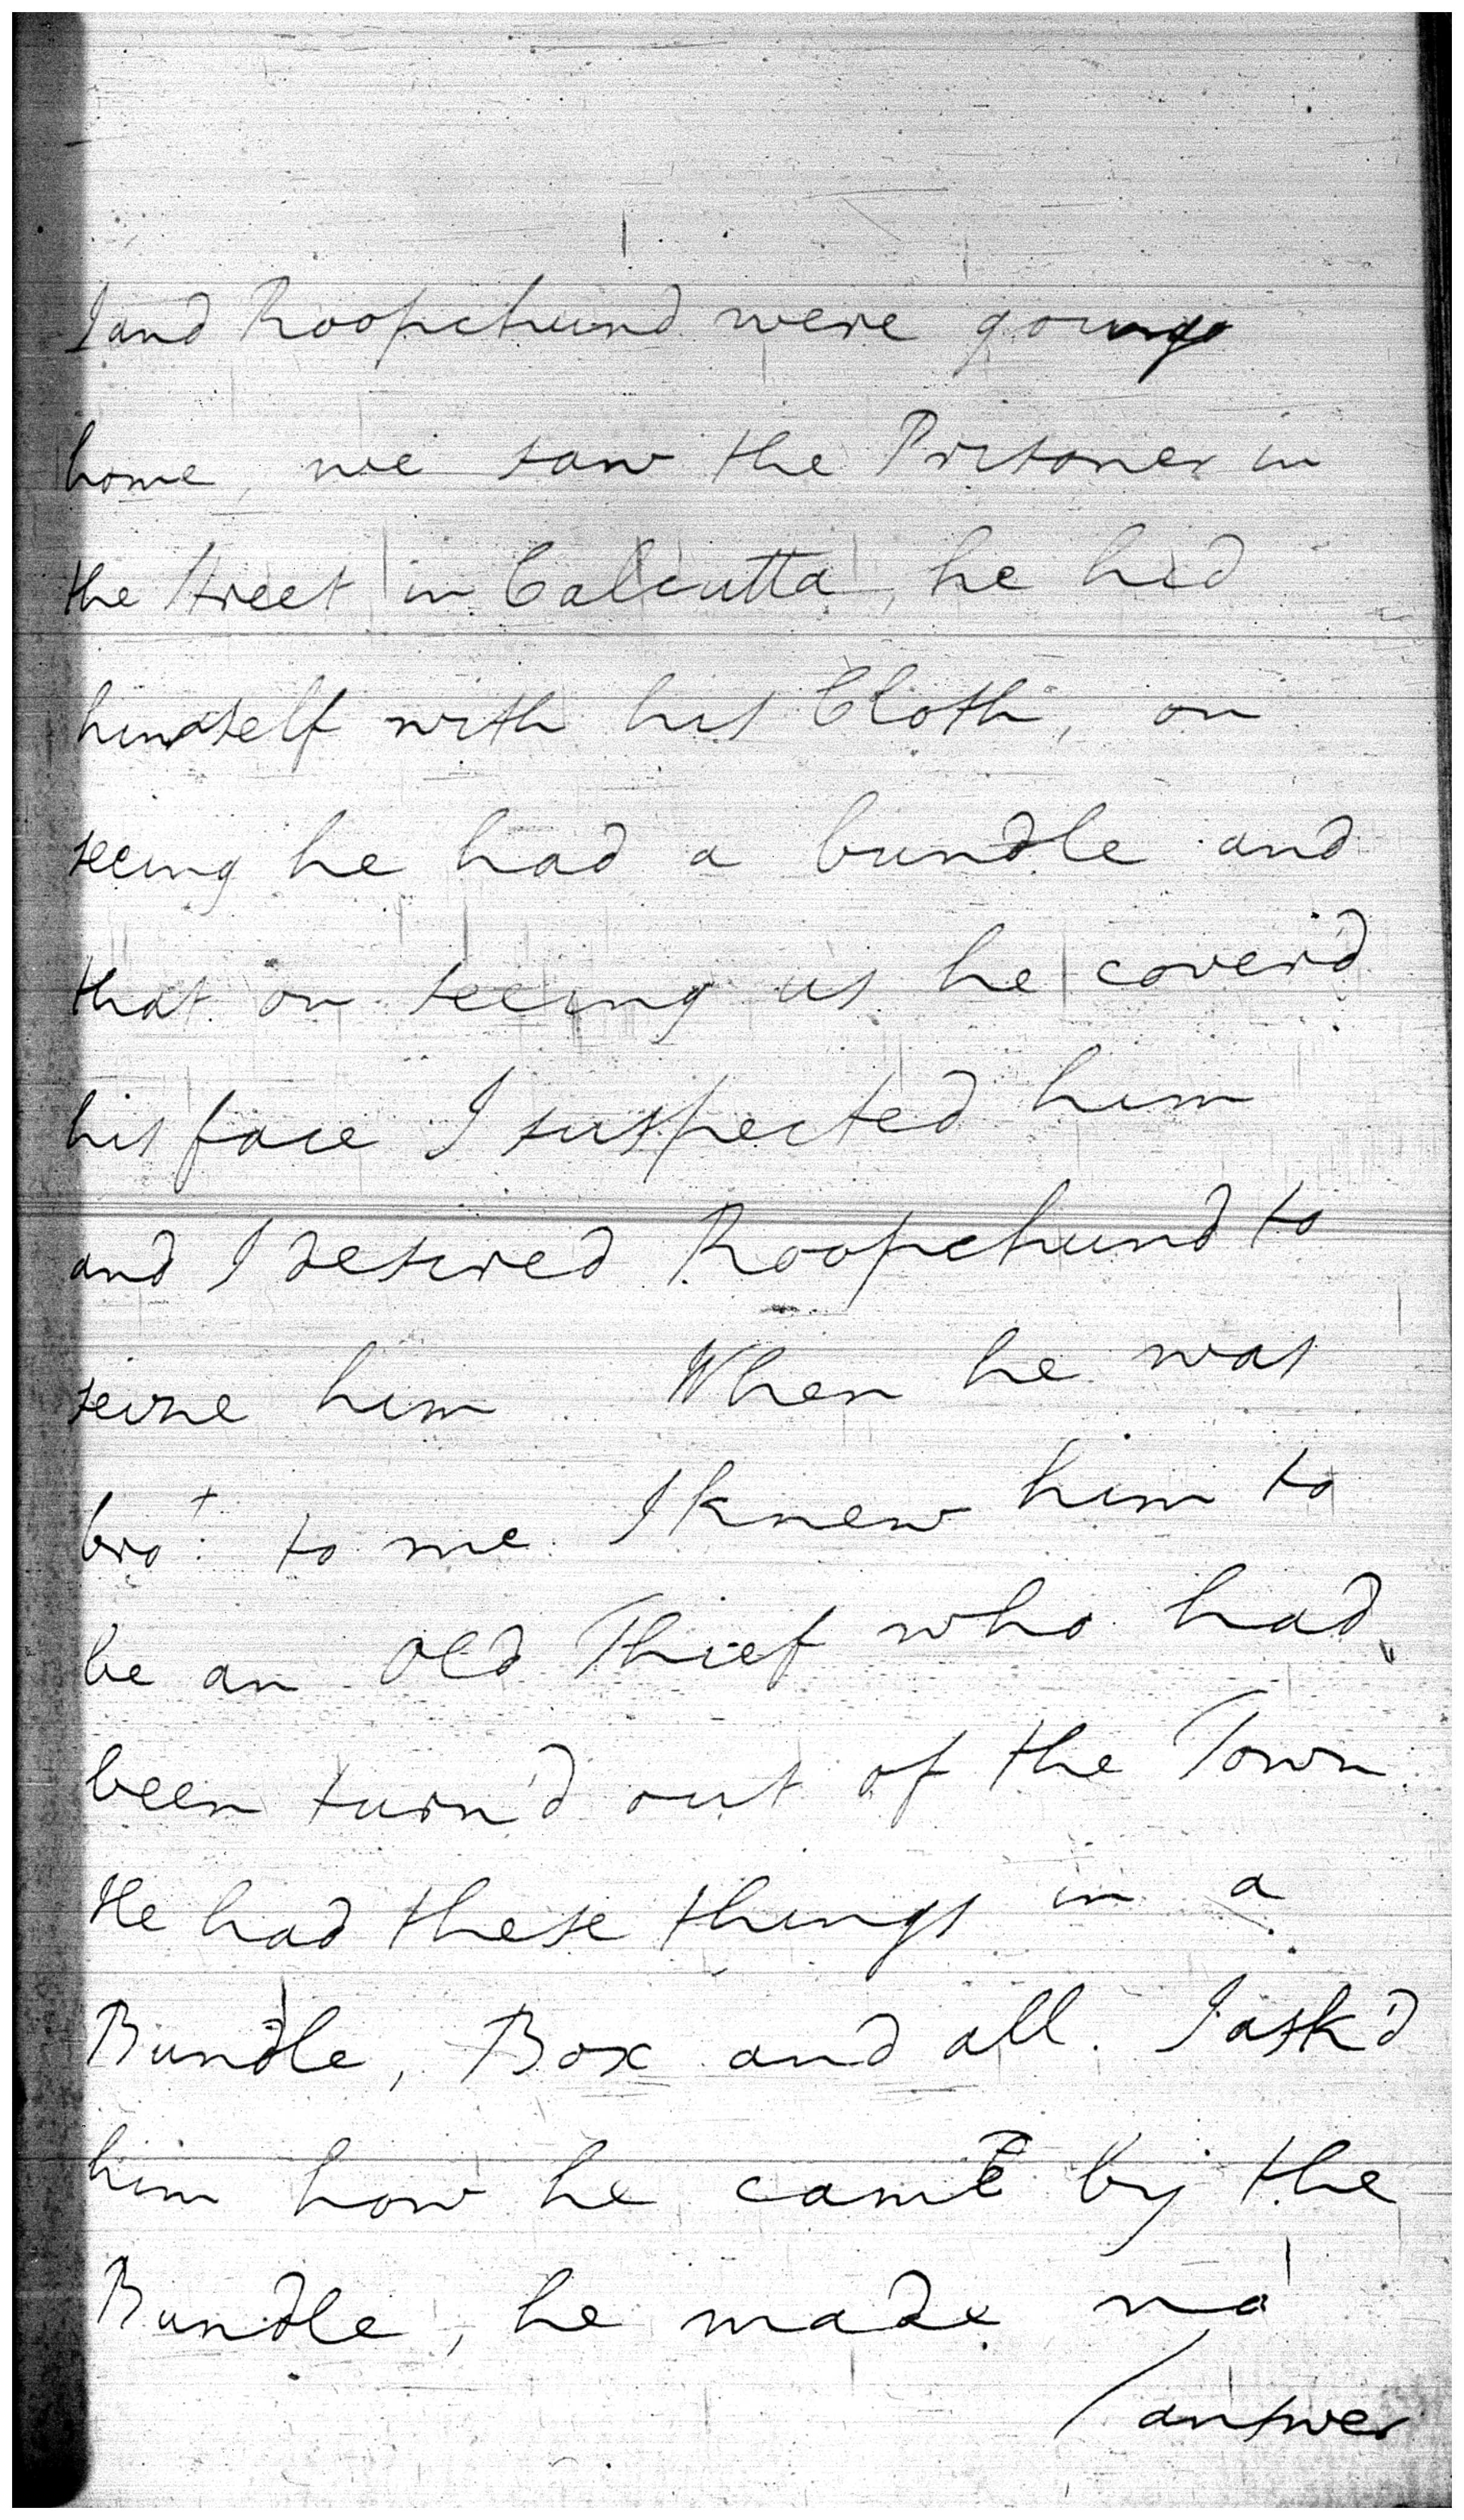 I and Roopchund were going
home, we saw the Prisoner in
the Street in Calcutta, he hid
himself with his Cloth, on
seeing he had a bundle and
that on seeing us he cover'd
his face I suspected him
and I desired Roopchund to
seize him When he was
bro.t to me I knew him to
be an Old Thief who had
been turn'd out of the Town.
He had these things in a
Bundle, Box and all. I ask'd
him how he came by the
Bundle, he made no
/answer